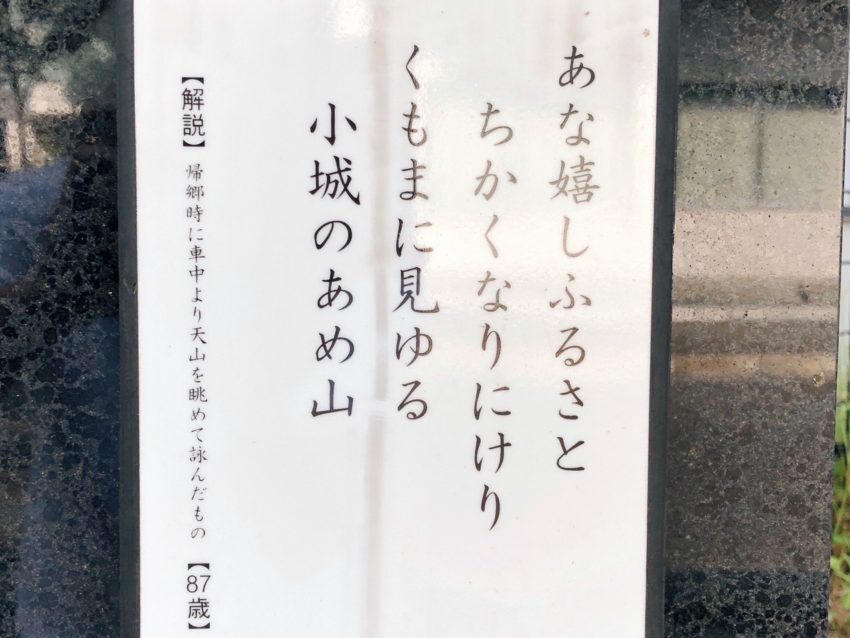 あな嬉しふるさと
ちかくなりにけり
くもまに見ゆる
小城のあめ山
【解説】帰郷時に車中より天山を眺めて詠んだもの【87歳】